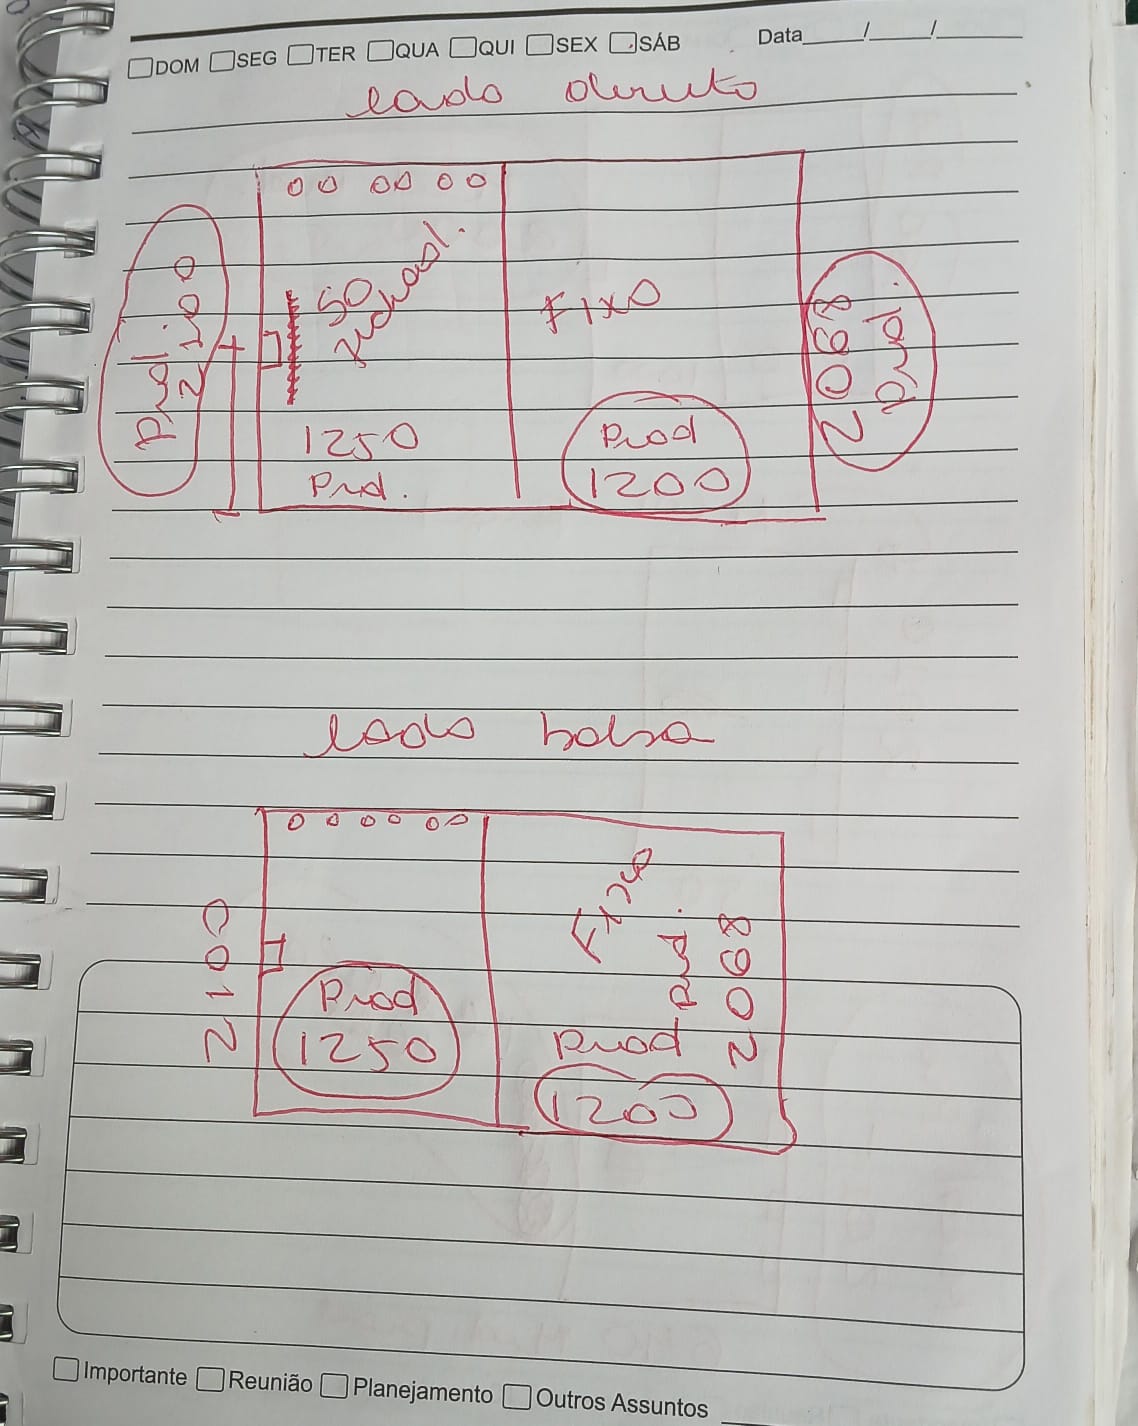 DOM SEG TER QUA QUI SEX SÁB Data / /
lado direito
Prod
2100
50
1250
Prod.
Fixo
Prod
1200
2068
prod.
lado bolsa
2100
Prod
1250
Fixo
Prod.
2068
Prod
1200
Importante Reunião Planejamento Outros Assuntos